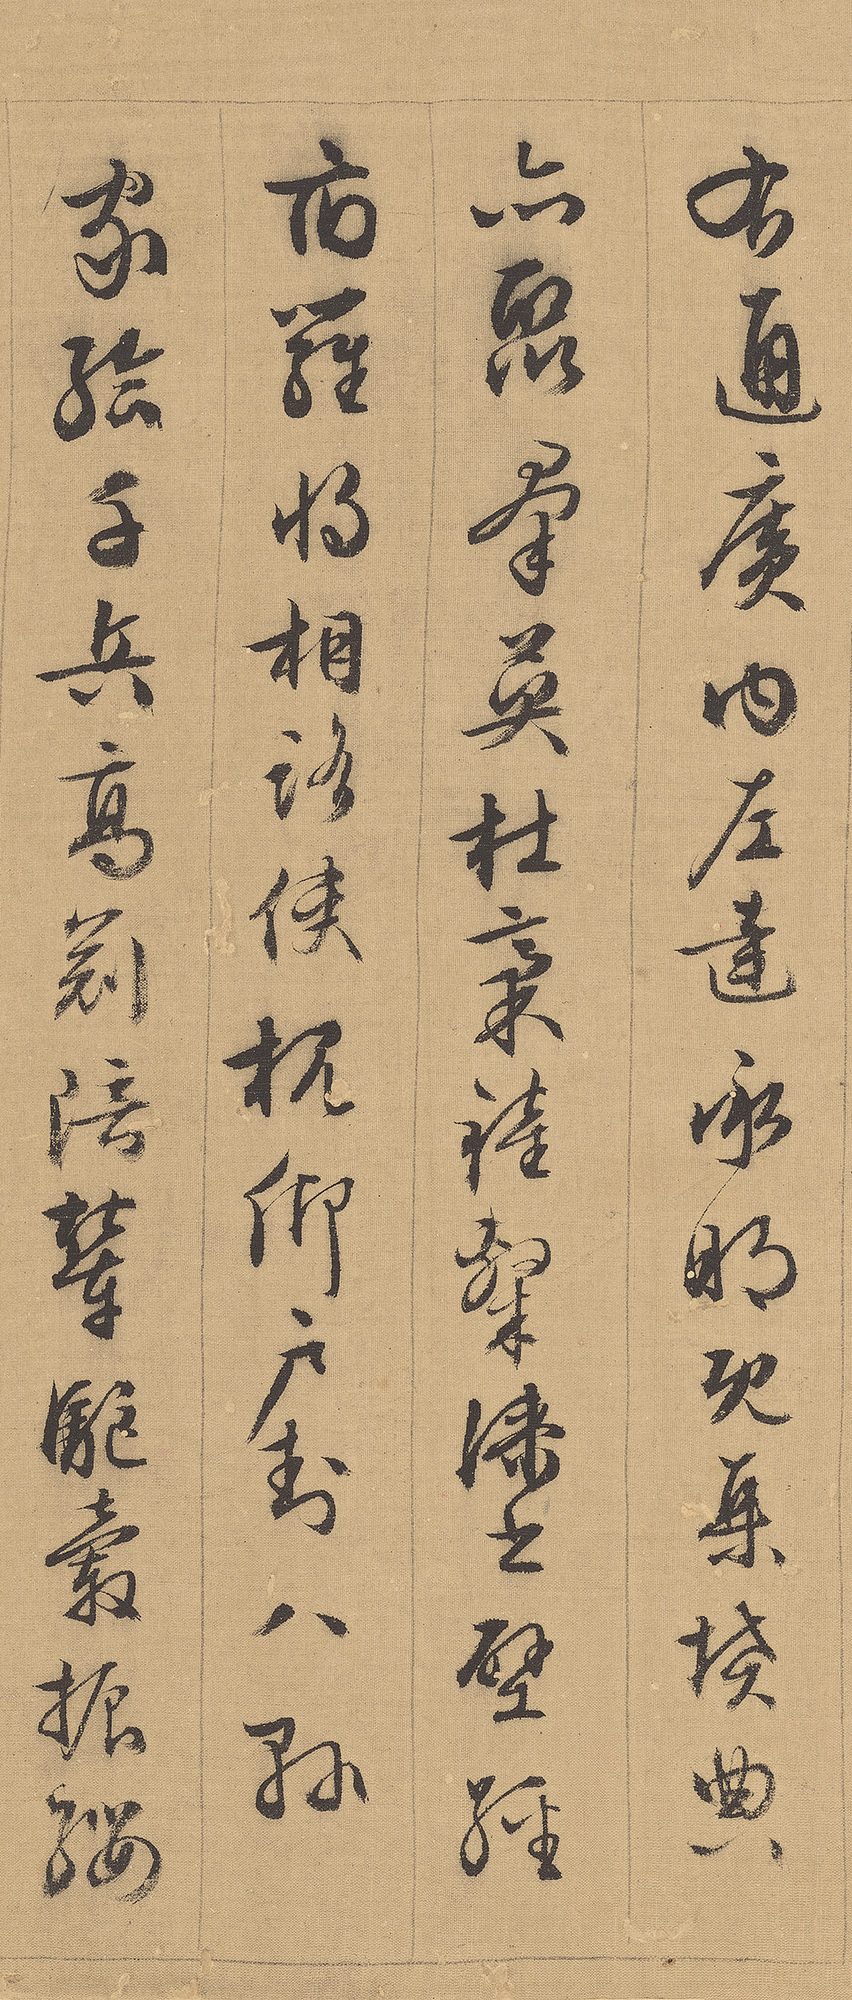 右通廣內左達承明既集墳典
亦聚羣英杜稾鍾隸漆書壁經
府羅將相路俠槐卿戶封八縣
家給千兵高冠陪輦驅轂振纓